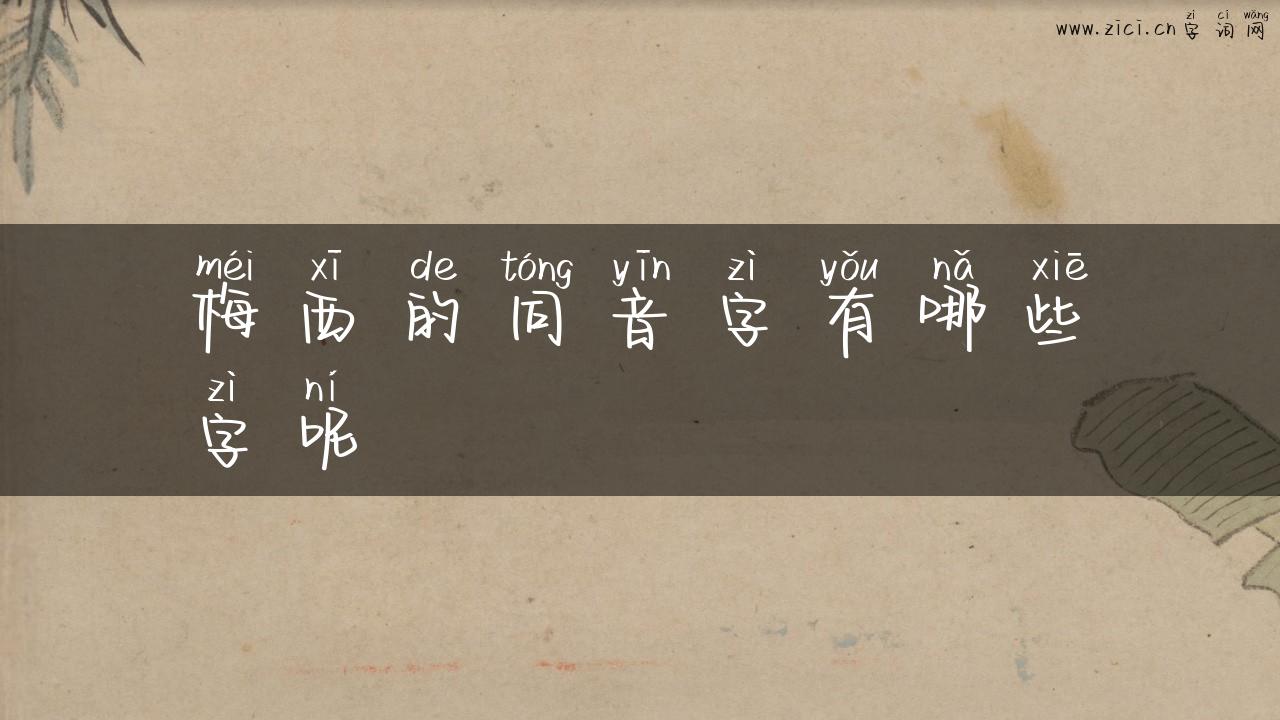 zì cí wǎng
www.zici.cn 字词网
méi xī de tóng yīn zì yǒu nǎ xiē
梅西的同音字有哪些
zì ní
字呢